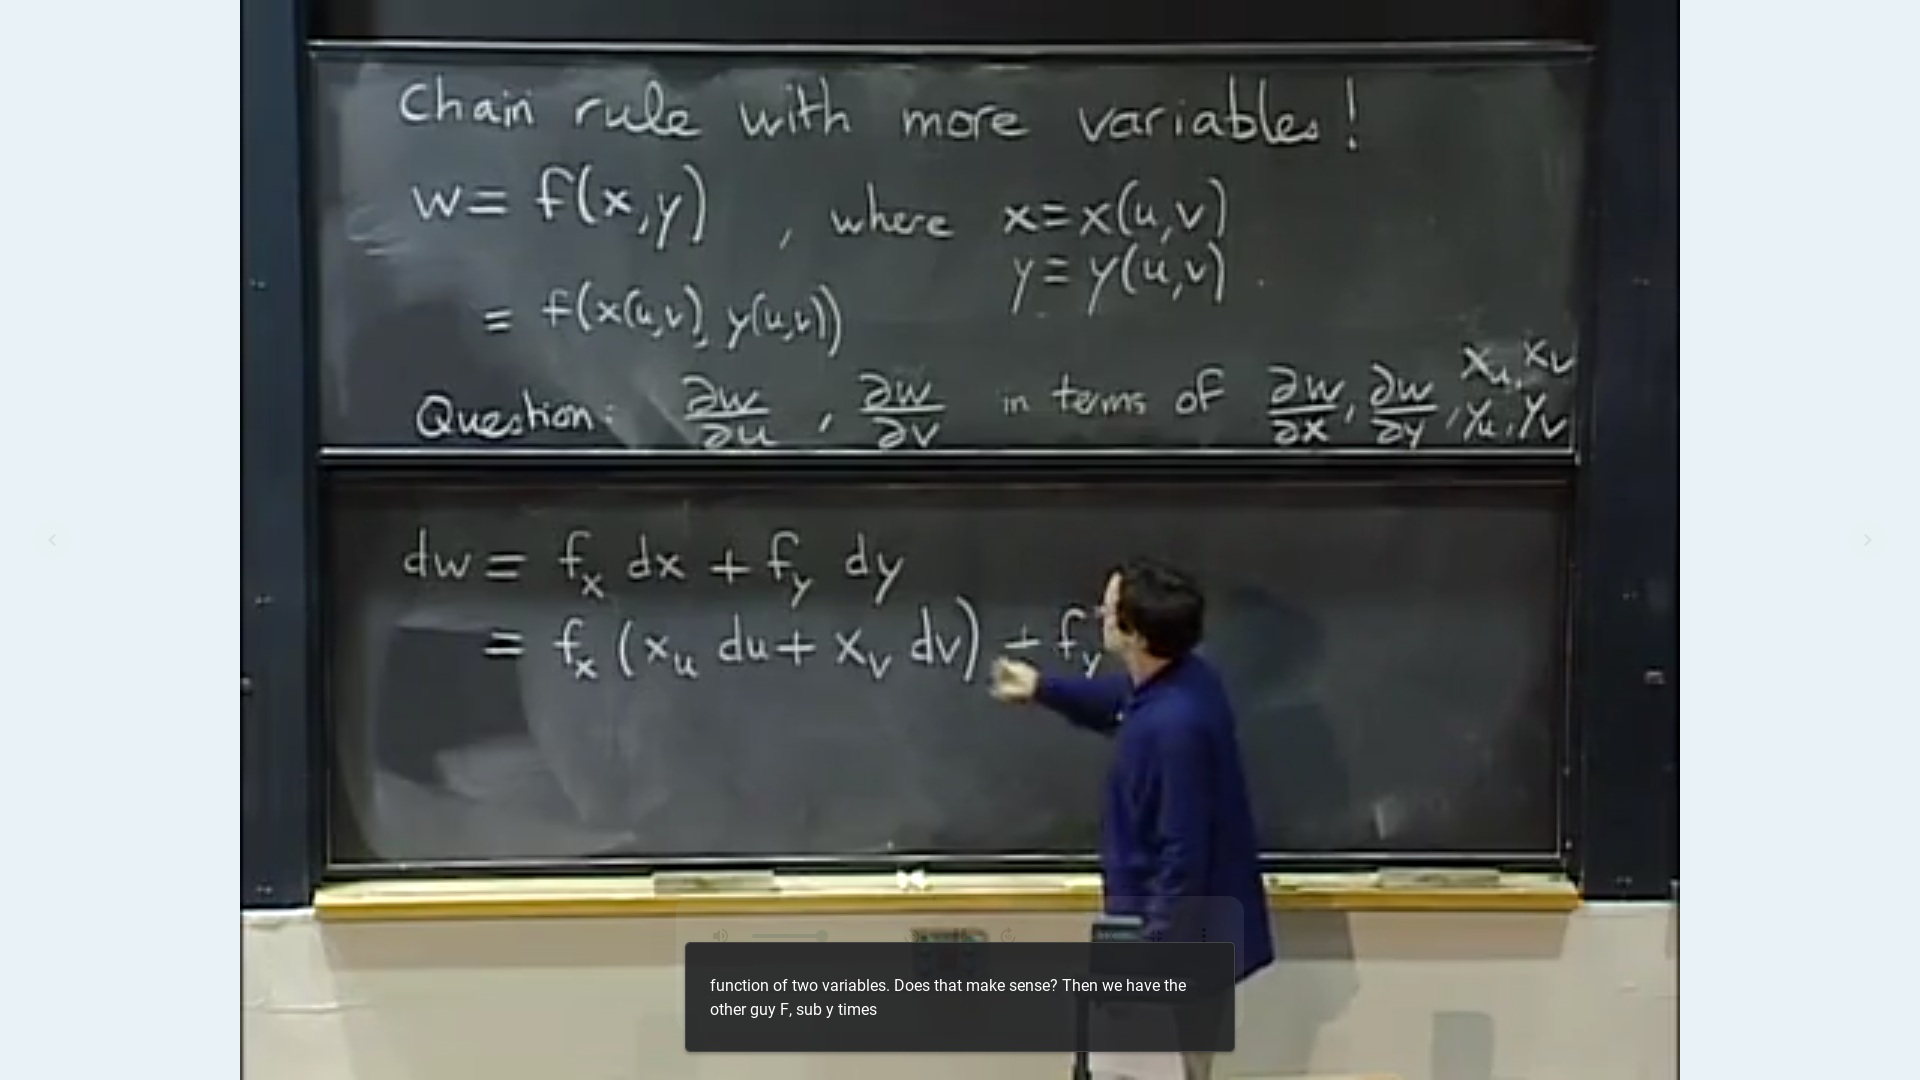 Chain rule with more variables!
w = f(x,y) , where x = x(u,v)
y = y(u,v)
= f(x(u,v), y(u,v))
Question: ∂w/∂u , ∂w/∂v in terms of ∂w/∂x, ∂w/∂y, x_u, x_v, y_u, y_v
dw = f_x dx + f_y dy
= f_x (x_u du + x_v dv) + f_y
function of two variables. Does that make sense? Then we have the
other guy F, sub y times